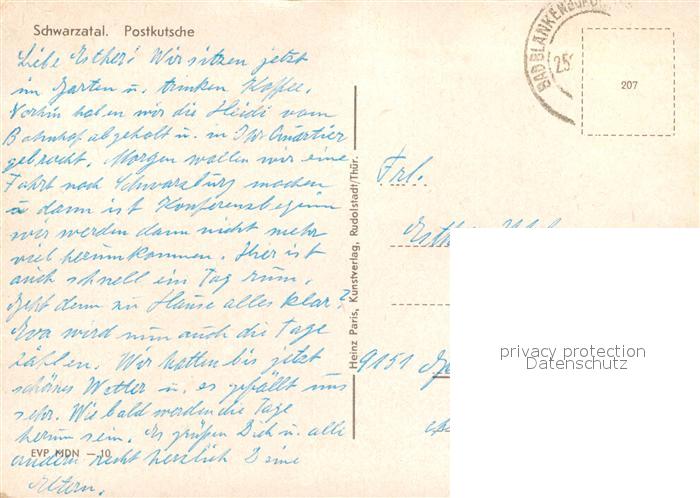 Schwarzatal. Postkutsche
Liebe Esther! Wir sitzen jetzt
im Garten u. trinken Kaffee.
Vorhin haben wir die Heidi vom
Bahnhof abgeholt u. in Ihr Quartier
gebracht. Morgen wollen wir eine
Fahrt nach Schwarzburg machen
u. dann ist Konferenzbeginn
wir werden dann nicht mehr
viel herumkommen. Hier ist
auch schnell ein Tag rum.
Geht denn zu Hause alles klar?
Eva wird nun auch die Tage
zählen. Wir hatten bis jetzt
schönes Wetter u. es gefällt uns
sehr. Wie bald werden die Tage
herum sein. Es grüßen Dich u. alle
andern recht herzlich Deine
Eltern.
EVP MDN — 10
Heinz Paris, Kunstverlag, Rudolstadt/Thür.
BAD BLANKENBURG
25
207
Frl.
9151
privacy protection
Datenschutz